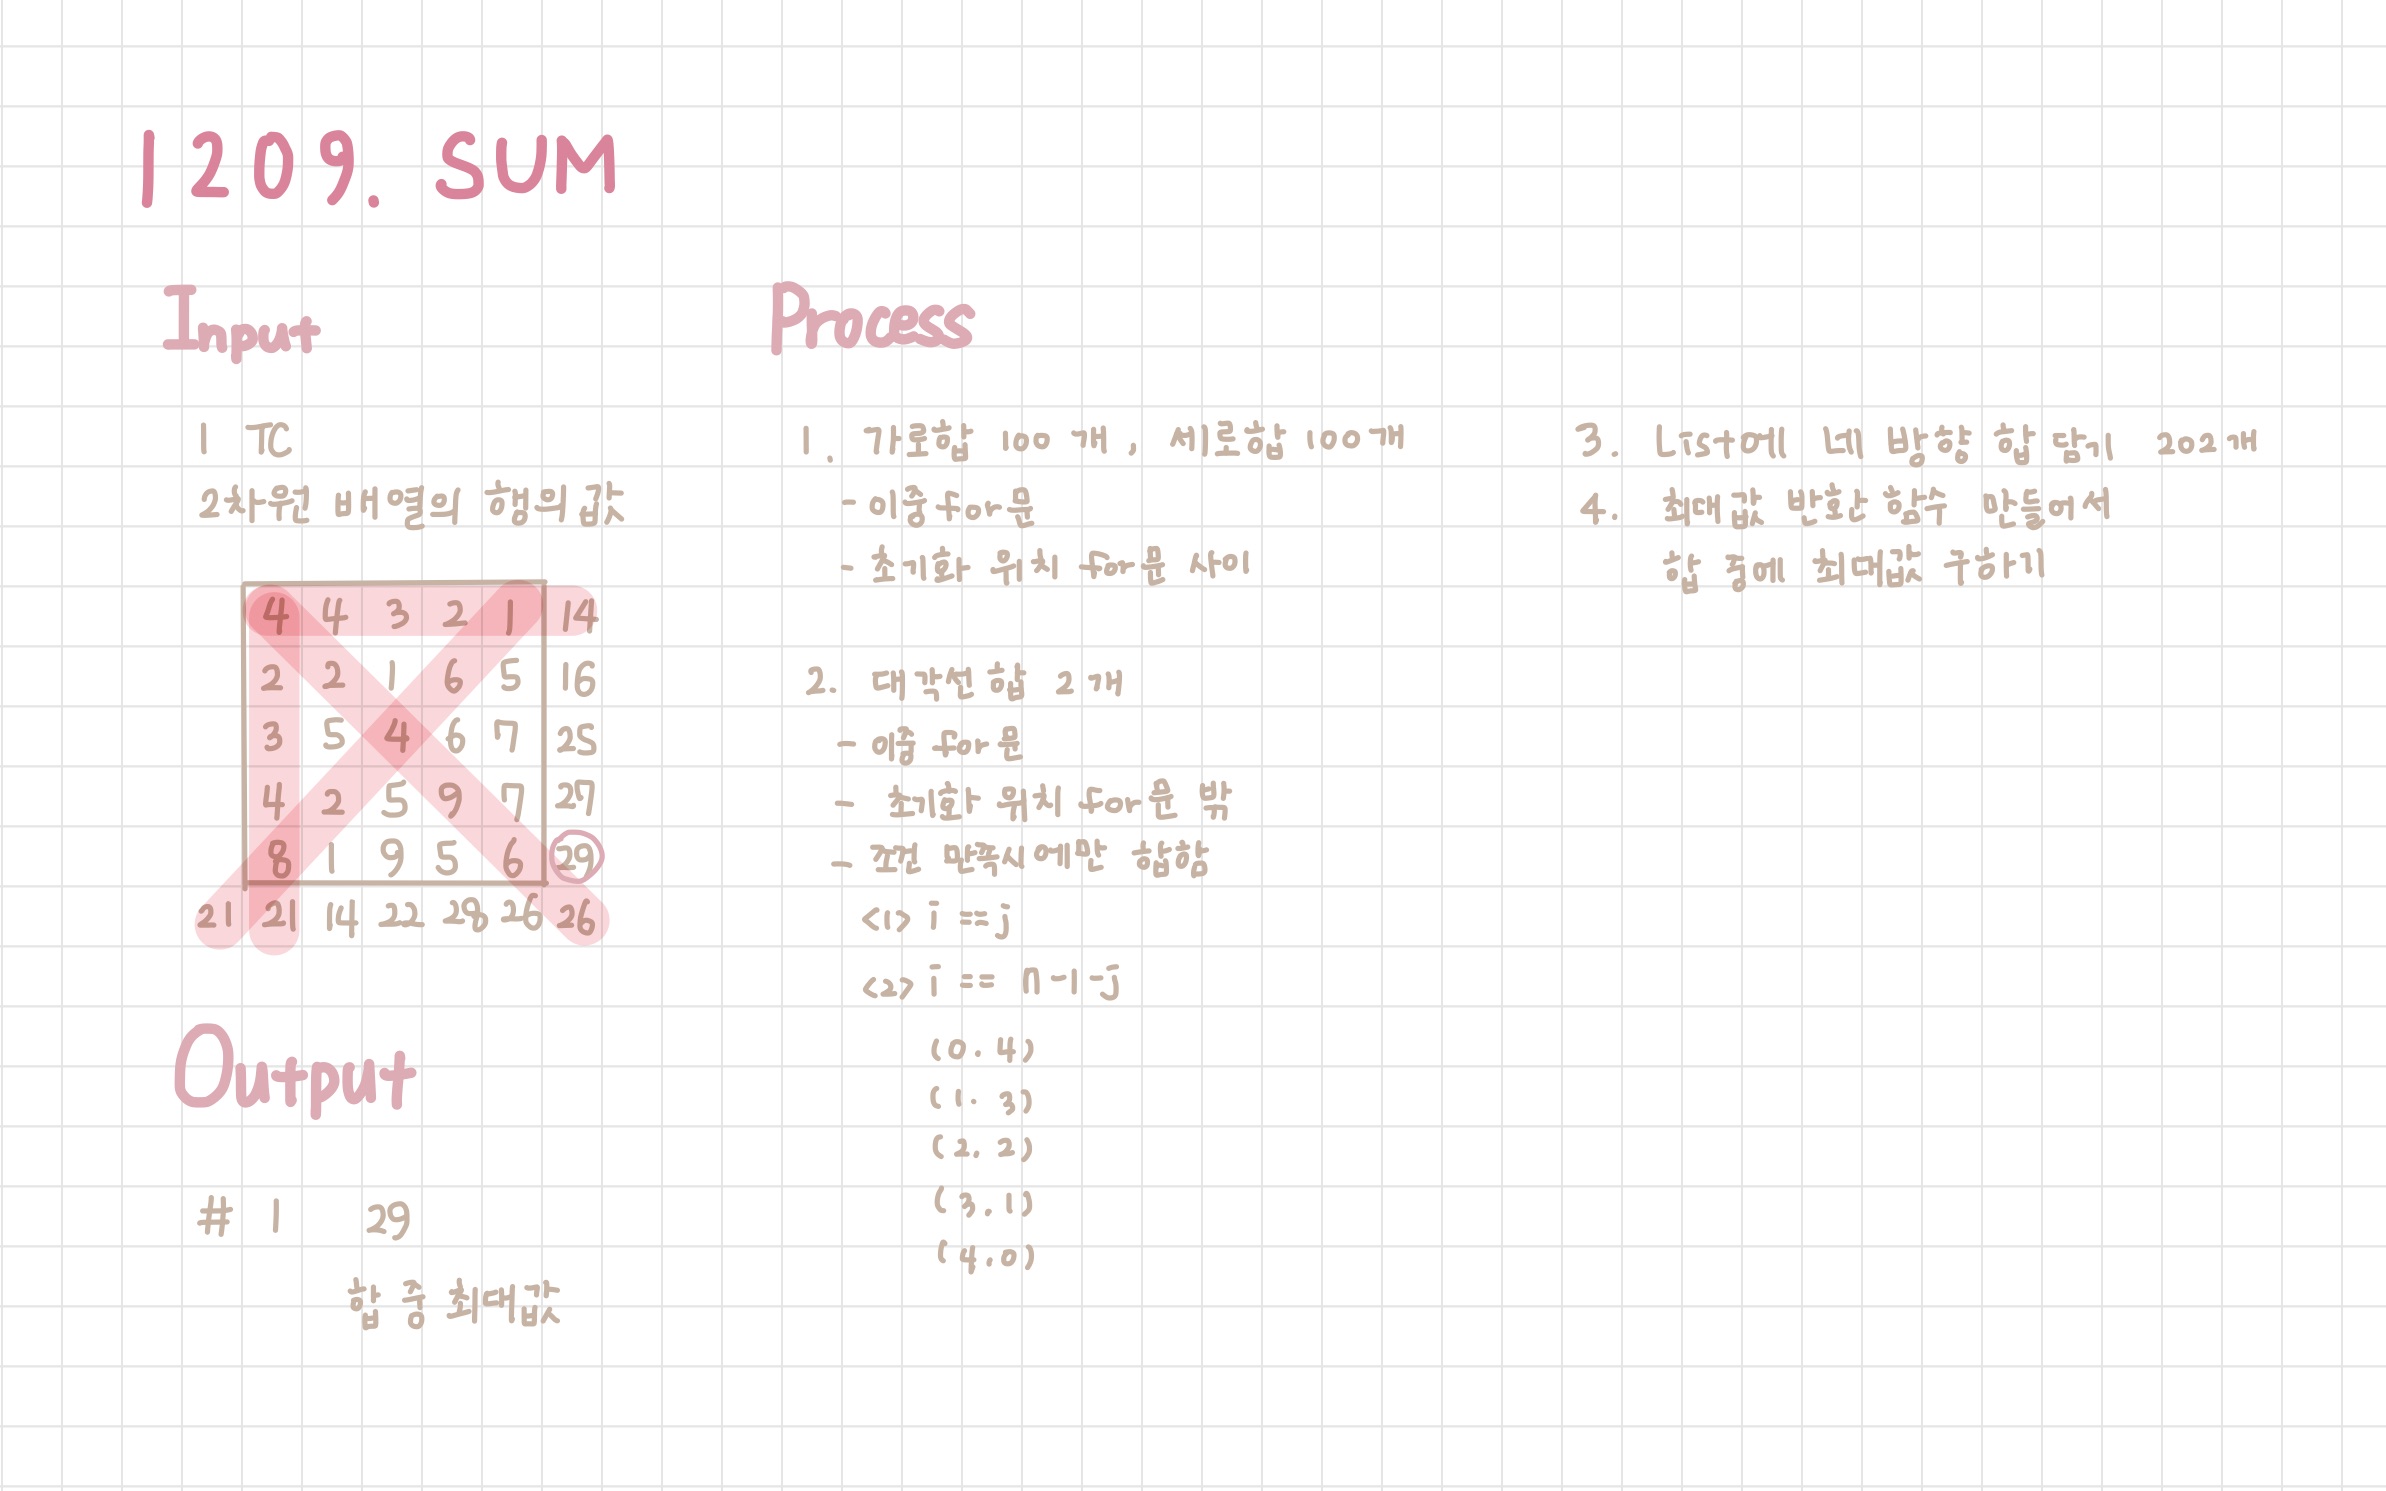 1209. SUM
Input
1 TC
2차원 배열의 행의 값
4 4 3 2 1 14
2 2 1 6 5 16
3 5 4 6 7 25
4 2 5 9 7 27
8 1 9 5 6 29
21 21 14 22 28 26 26
Output
# 1 29
합 중 최대값
Process
1. 가로합 100개, 세로합 100개
- 이중 for문
- 초기화 위치 for문 사이
2. 대각선 합 2개
- 이중 for문
- 초기화 위치 for문 밖
- 조건 만족시에만 합함
<1> i == j
<2> i == n-1-j
(0.4)
(1.3)
(2.2)
(3.1)
(4.0)
3. List에 네 방향 합 담기 202개
4. 최대값 반환 함수 만들어서
합 중에 최대값 구하기